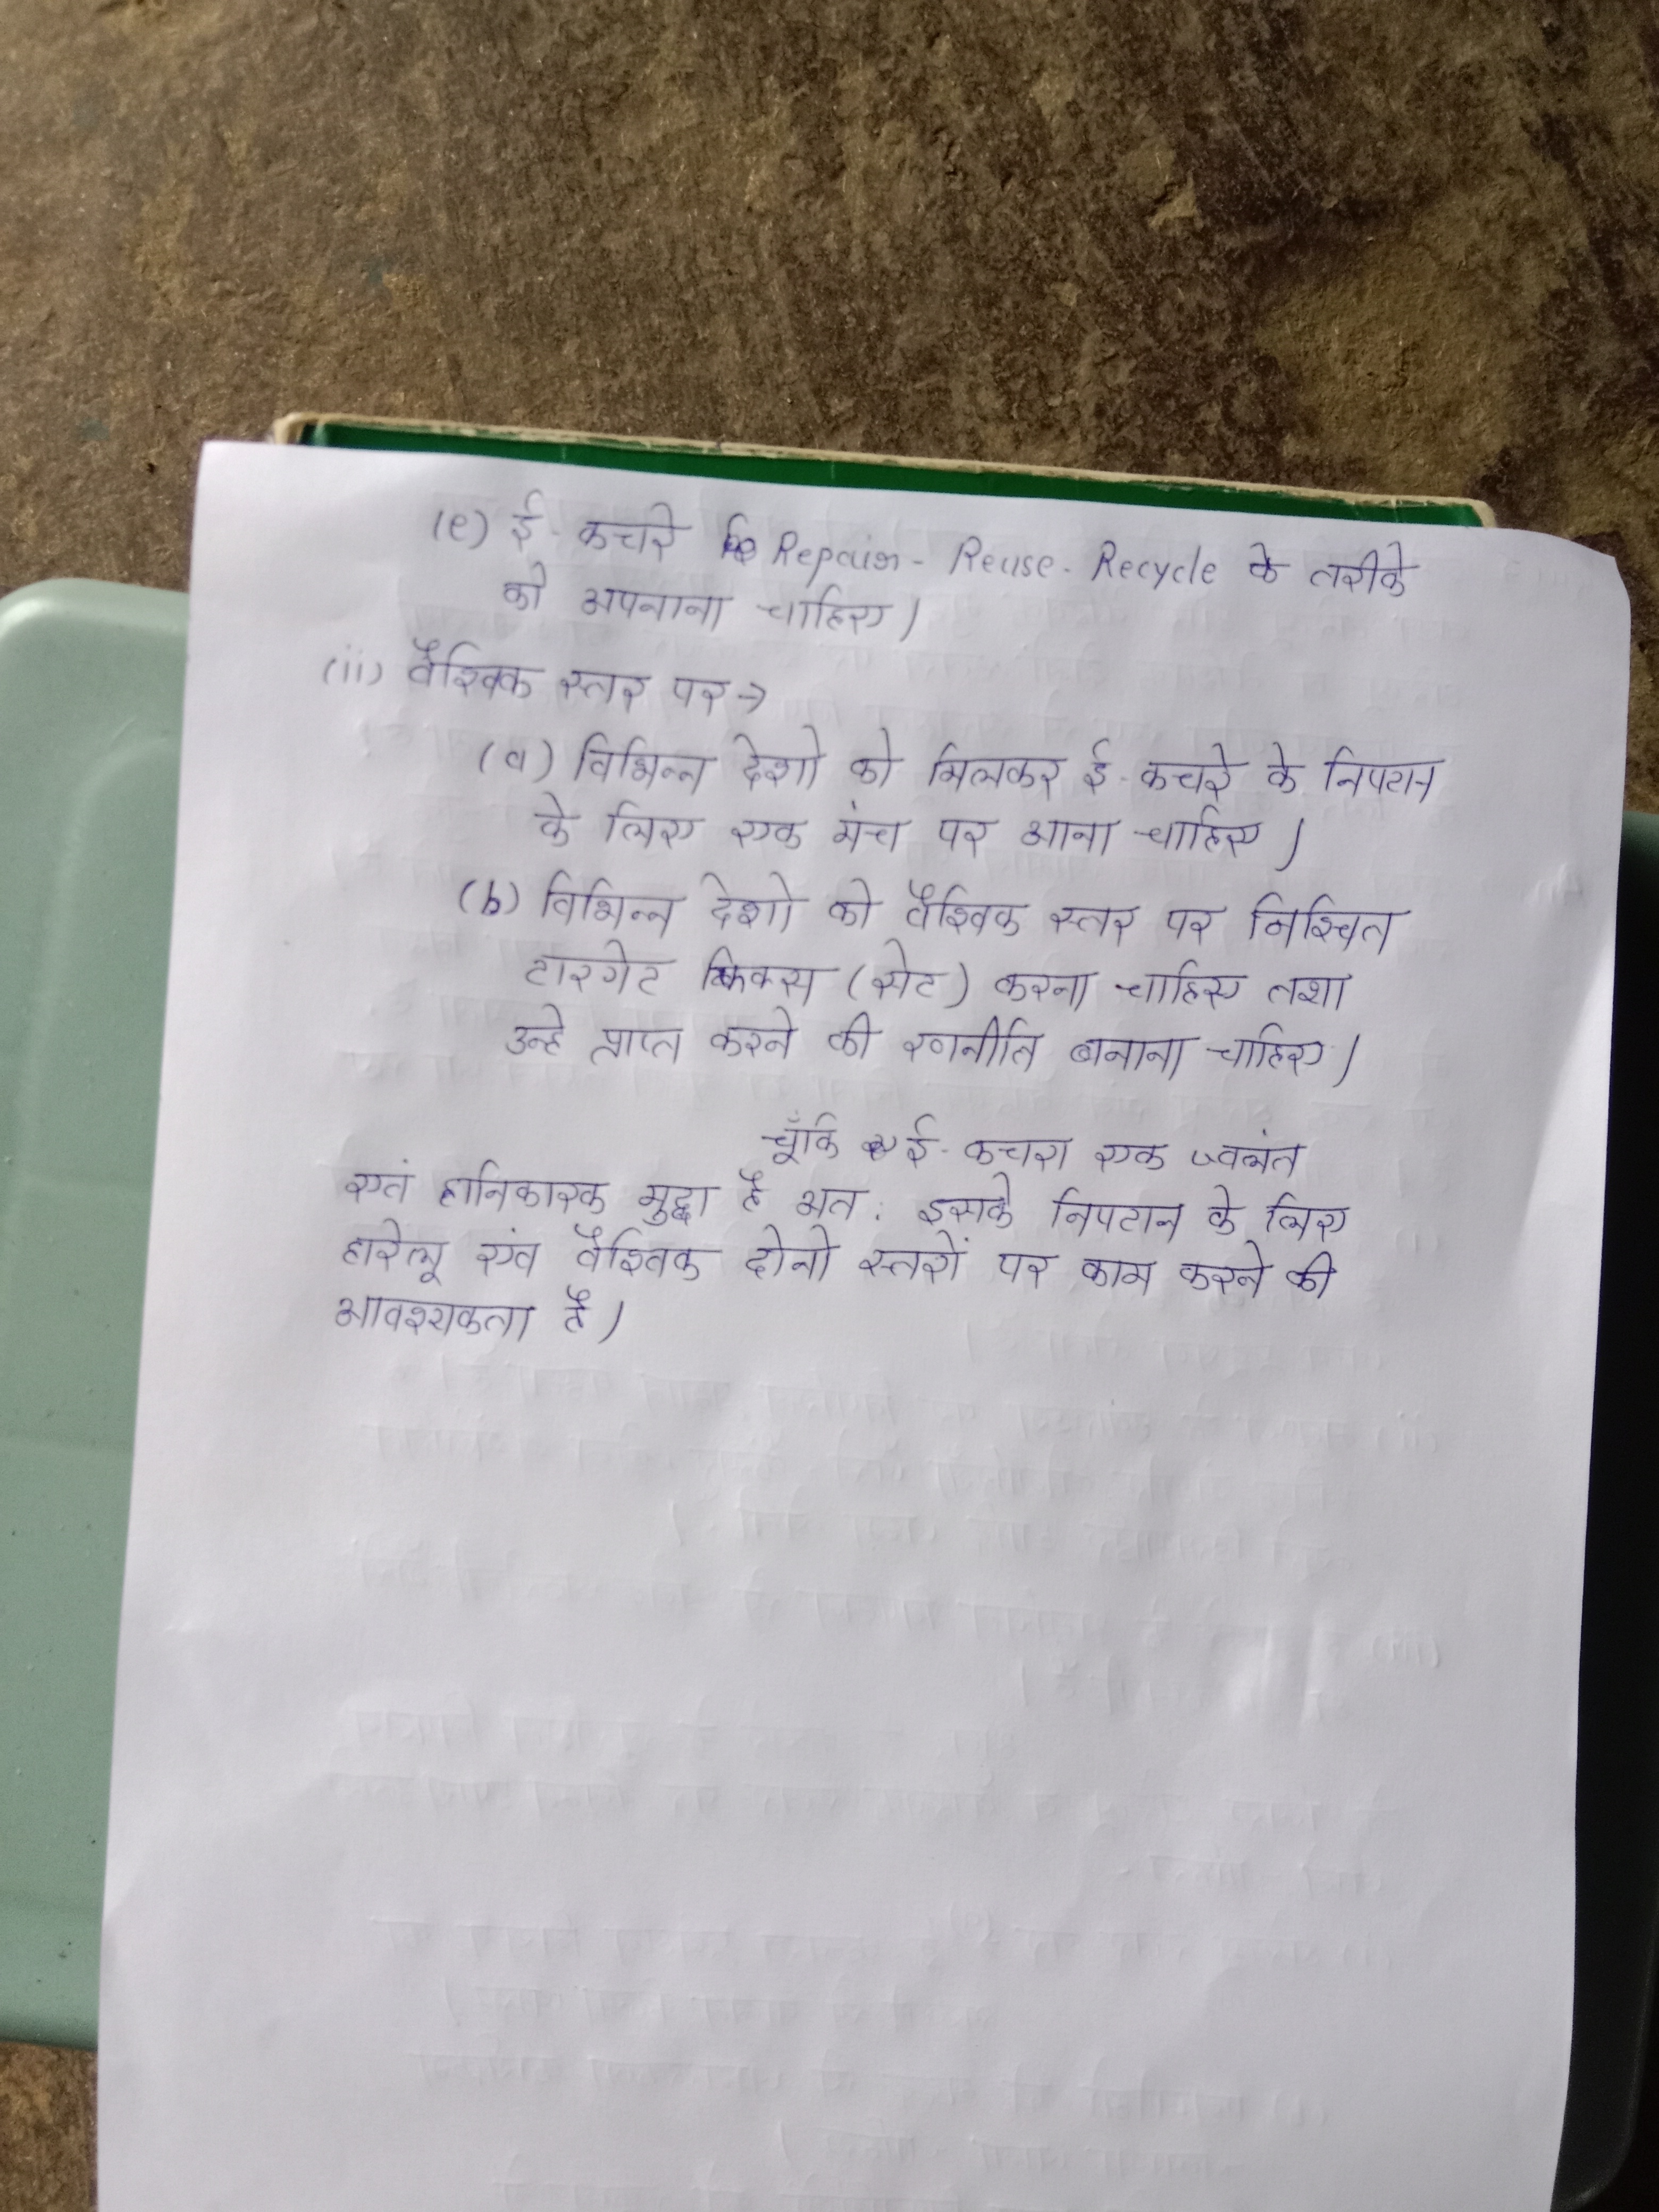 (e) ई-कचरे Repair - Reuse - Recycle के तरीके
को अपनाना चाहिए।
(ii) वैश्विक स्तर पर →
(a) विभिन्न देशो को मिलकर ई-कचरे के निपटान
के लिए एक मंच पर आना चाहिए।
(b) विभिन्न देशो को वैश्विक स्तर पर निश्चित
टारगेट फिक्स (सेट) करना चाहिए तथा
उन्हे प्राप्त करने की रणनीति बनाना चाहिए।
चूँकि ई-कचरा एक ज्वलंत
एवं हानिकारक मुद्दा है अत: इसके निपटान के लिए
घरेलू एवं वैश्विक दोनो स्तरों पर काम करने की
आवश्यकता है।